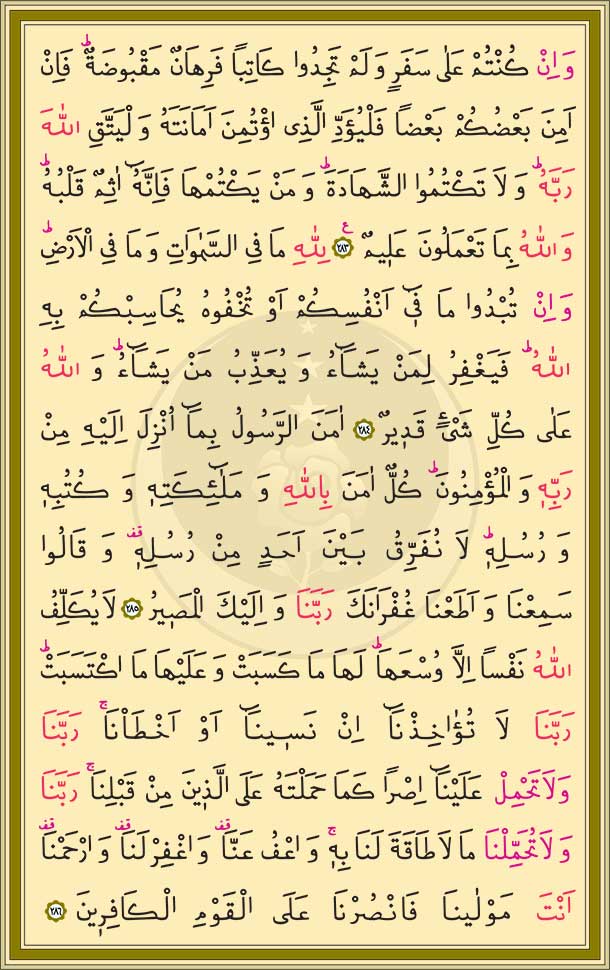 وَاِنْ كُنْتُمْ عَلٰى سَفَرٍ وَلَمْ تَجِدُوا كَاتِباً فَرِهَانٌ مَقْبُوضَةٌۜ فَاِنْ
اَمِنَ بَعْضُكُمْ بَعْضاً فَلْيُؤَدِّ الَّذِى اؤْتُمِنَ اَمَانَتَهُ وَلْيَتَّقِ اللّٰهَ
رَبَّهُۜ وَلَا تَكْتُمُوا الشَّهَادَةَۜ وَمَنْ يَكْتُمْهَا فَاِنَّهُٓ اٰثِمٌ قَلْبُهُۜ
وَاللّٰهُ بِمَا تَعْمَلُونَ عَلٖيمٌ ﴿٢٨٣﴾ لِلّٰهِ مَا فِى السَّمٰوَاتِ وَمَا فِى الْاَرْضِۜ
وَاِنْ تُبْدُوا مَا فٖٓى اَنْفُسِكُمْ اَوْ تُخْفُوهُ يُحَاسِبْكُمْ بِهِ
اللّٰهُۜ فَيَغْفِرُ لِمَنْ يَشَٓاءُ وَيُعَذِّبُ مَنْ يَشَٓاءُۜ وَاللّٰهُ
عَلٰى كُلِّ شَىْءٍ قَدٖيرٌ ﴿٢٨٤﴾ اٰمَنَ الرَّسُولُ بِمَٓا اُنْزِلَ اِلَيْهِ مِنْ
رَبِّهٖ وَالْمُؤْمِنُونَۜ كُلٌّ اٰمَنَ بِاللّٰهِ وَمَلٰٓئِكَتِهٖ وَكُتُبِهٖ
وَرُسُلِهٖۜ لَا نُفَرِّقُ بَيْنَ اَحَدٍ مِنْ رُسُلِهٖࣞ وَقَالُوا
سَمِعْنَا وَاَطَعْنَا غُفْرَانَكَ رَبَّنَا وَاِلَيْكَ الْمَصٖيرُ ﴿٢٨٥﴾ لَا يُكَلِّفُ
اللّٰهُ نَفْساً اِلَّا وُسْعَهَاۜ لَهَا مَا كَسَبَتْ وَعَلَيْهَا مَا اكْتَسَبَتْۜ
رَبَّنَا لَا تُؤَاخِذْنَٓا اِنْ نَسٖينَٓا اَوْ اَخْطَاْنَاۚ رَبَّنَا
وَلَا تَحْمِلْ عَلَيْنَٓا اِصْراً كَمَا حَمَلْتَهُ عَلَى الَّذٖينَ مِنْ قَبْلِنَاۚ رَبَّنَا
وَلَا تُحَمِّلْنَا مَا لَا طَاقَةَ لَنَا بِهٖۚ وَاعْفُ عَنَّاࣞ وَاغْفِرْ لَنَاࣞ وَارْحَمْنَاࣞ
اَنْتَ مَوْلٰينَا فَانْصُرْنَا عَلَى الْقَوْمِ الْكَافِرٖينَ ﴿٢٨٦﴾